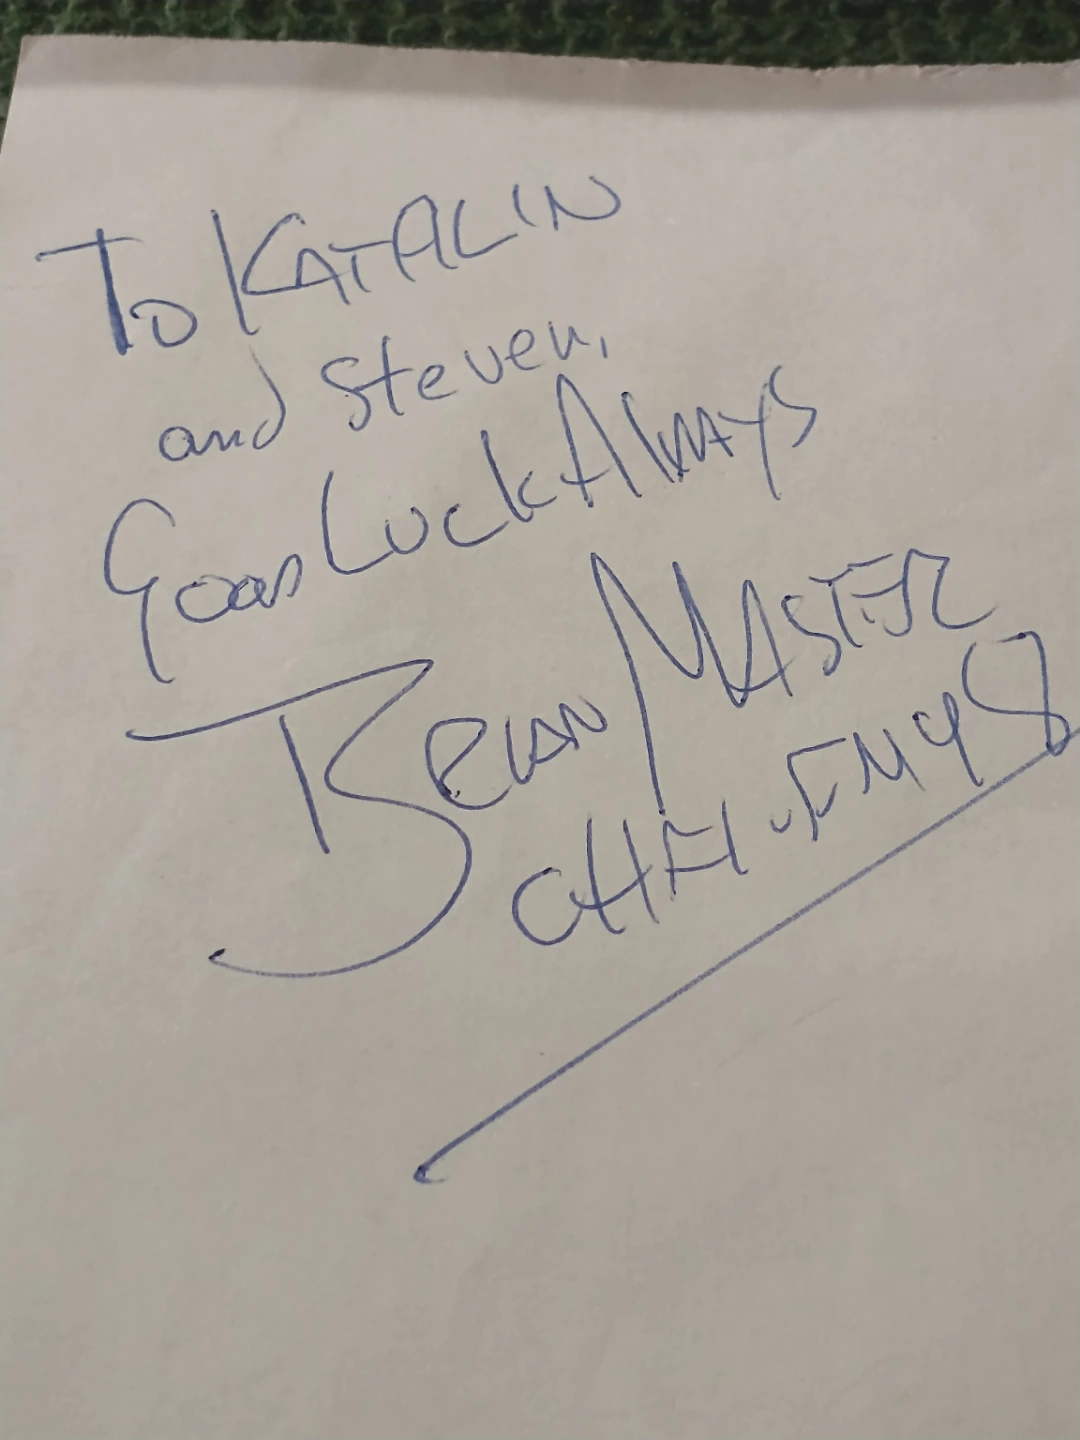 To KATALIN
and Steven,
Good Luck Always
Brian MASTER
CHFI-FM 98